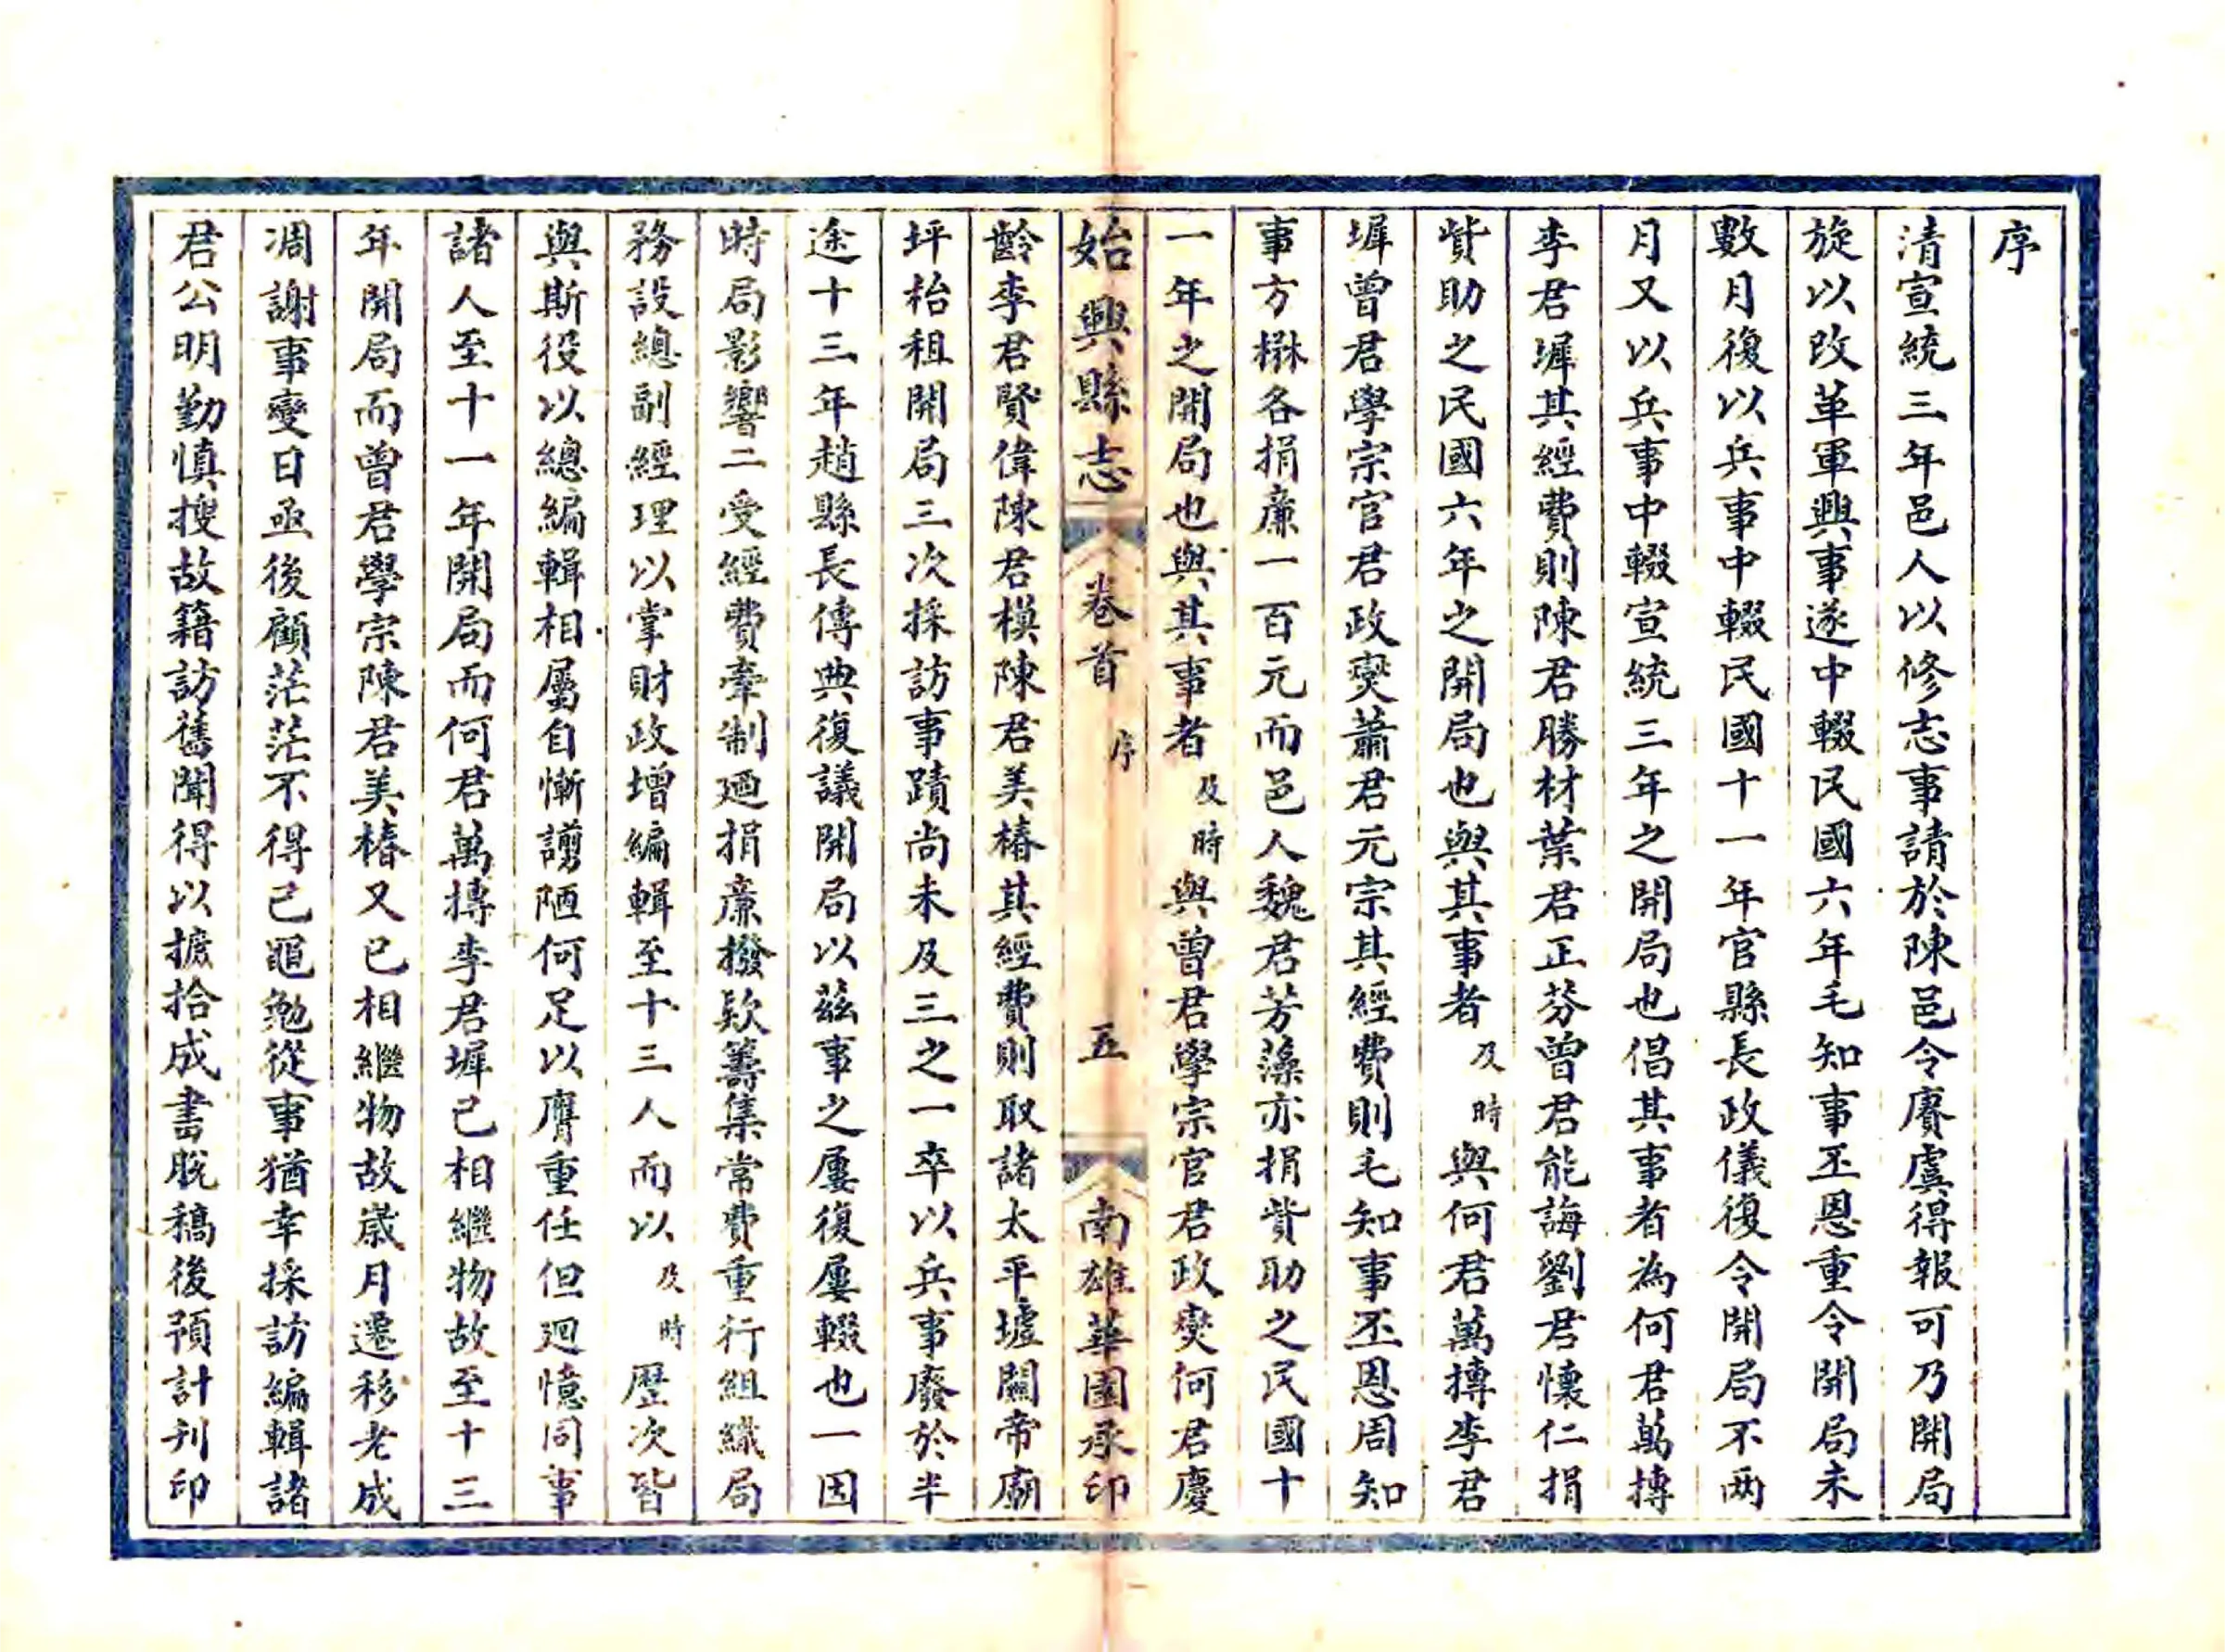 序
清宣統三年邑人以修志事請於陳邑令賡虞得報可乃開局
旋以改革軍興事遂中輟民國六年毛知事丕恩重令開局未
數月復以兵事中輟民國十一年官縣長政儀復令開局不两
月又以兵事中輟宣統三年之開局也倡其事者為何君萬摶
李君墀其經費則陳君勝材葉君正芬曾君能誨劉君懷仁捐
貲助之民國六年之開局也與其事者及時與何君萬摶李君
墀曾君學宗官君政燮蕭君元宗其經費則毛知事丕恩周知
事方楙各捐廉一百元而邑人魏君芳藻亦捐貲助之民國十
一年之開局也與其事者及時與曾君學宗官君政燮何君慶
始興縣志 卷首 序 五 南雄華園承印
齡李君賢偉陳君模陳君美椿其經費則取諸太平墟關帝廟
坪枱租開局三次採訪事蹟尚未及三之一卒以兵事廢於半
途十三年趙縣長傳典復議開局以茲事之屢復屢輟也一因
時局影響二受經費牽制廼捐廉撥欵籌集常費重行組織局
務設總副經理以掌財政增編輯至十三人而以及時歷次皆
與斯役以總編輯相屬自慚謭陋何足以膺重任但廻憶同事
諸人至十一年開局而何君萬摶李君墀已相繼物故至十三
年開局而曾君學宗陳君美椿又已相繼物故歲月遷移老成
凋謝事變日亟後顧茫茫不得已黽勉從事猶幸採訪編輯諸
君公明勤慎搜故籍訪舊聞得以摭拾成書脫稿後預計刊印